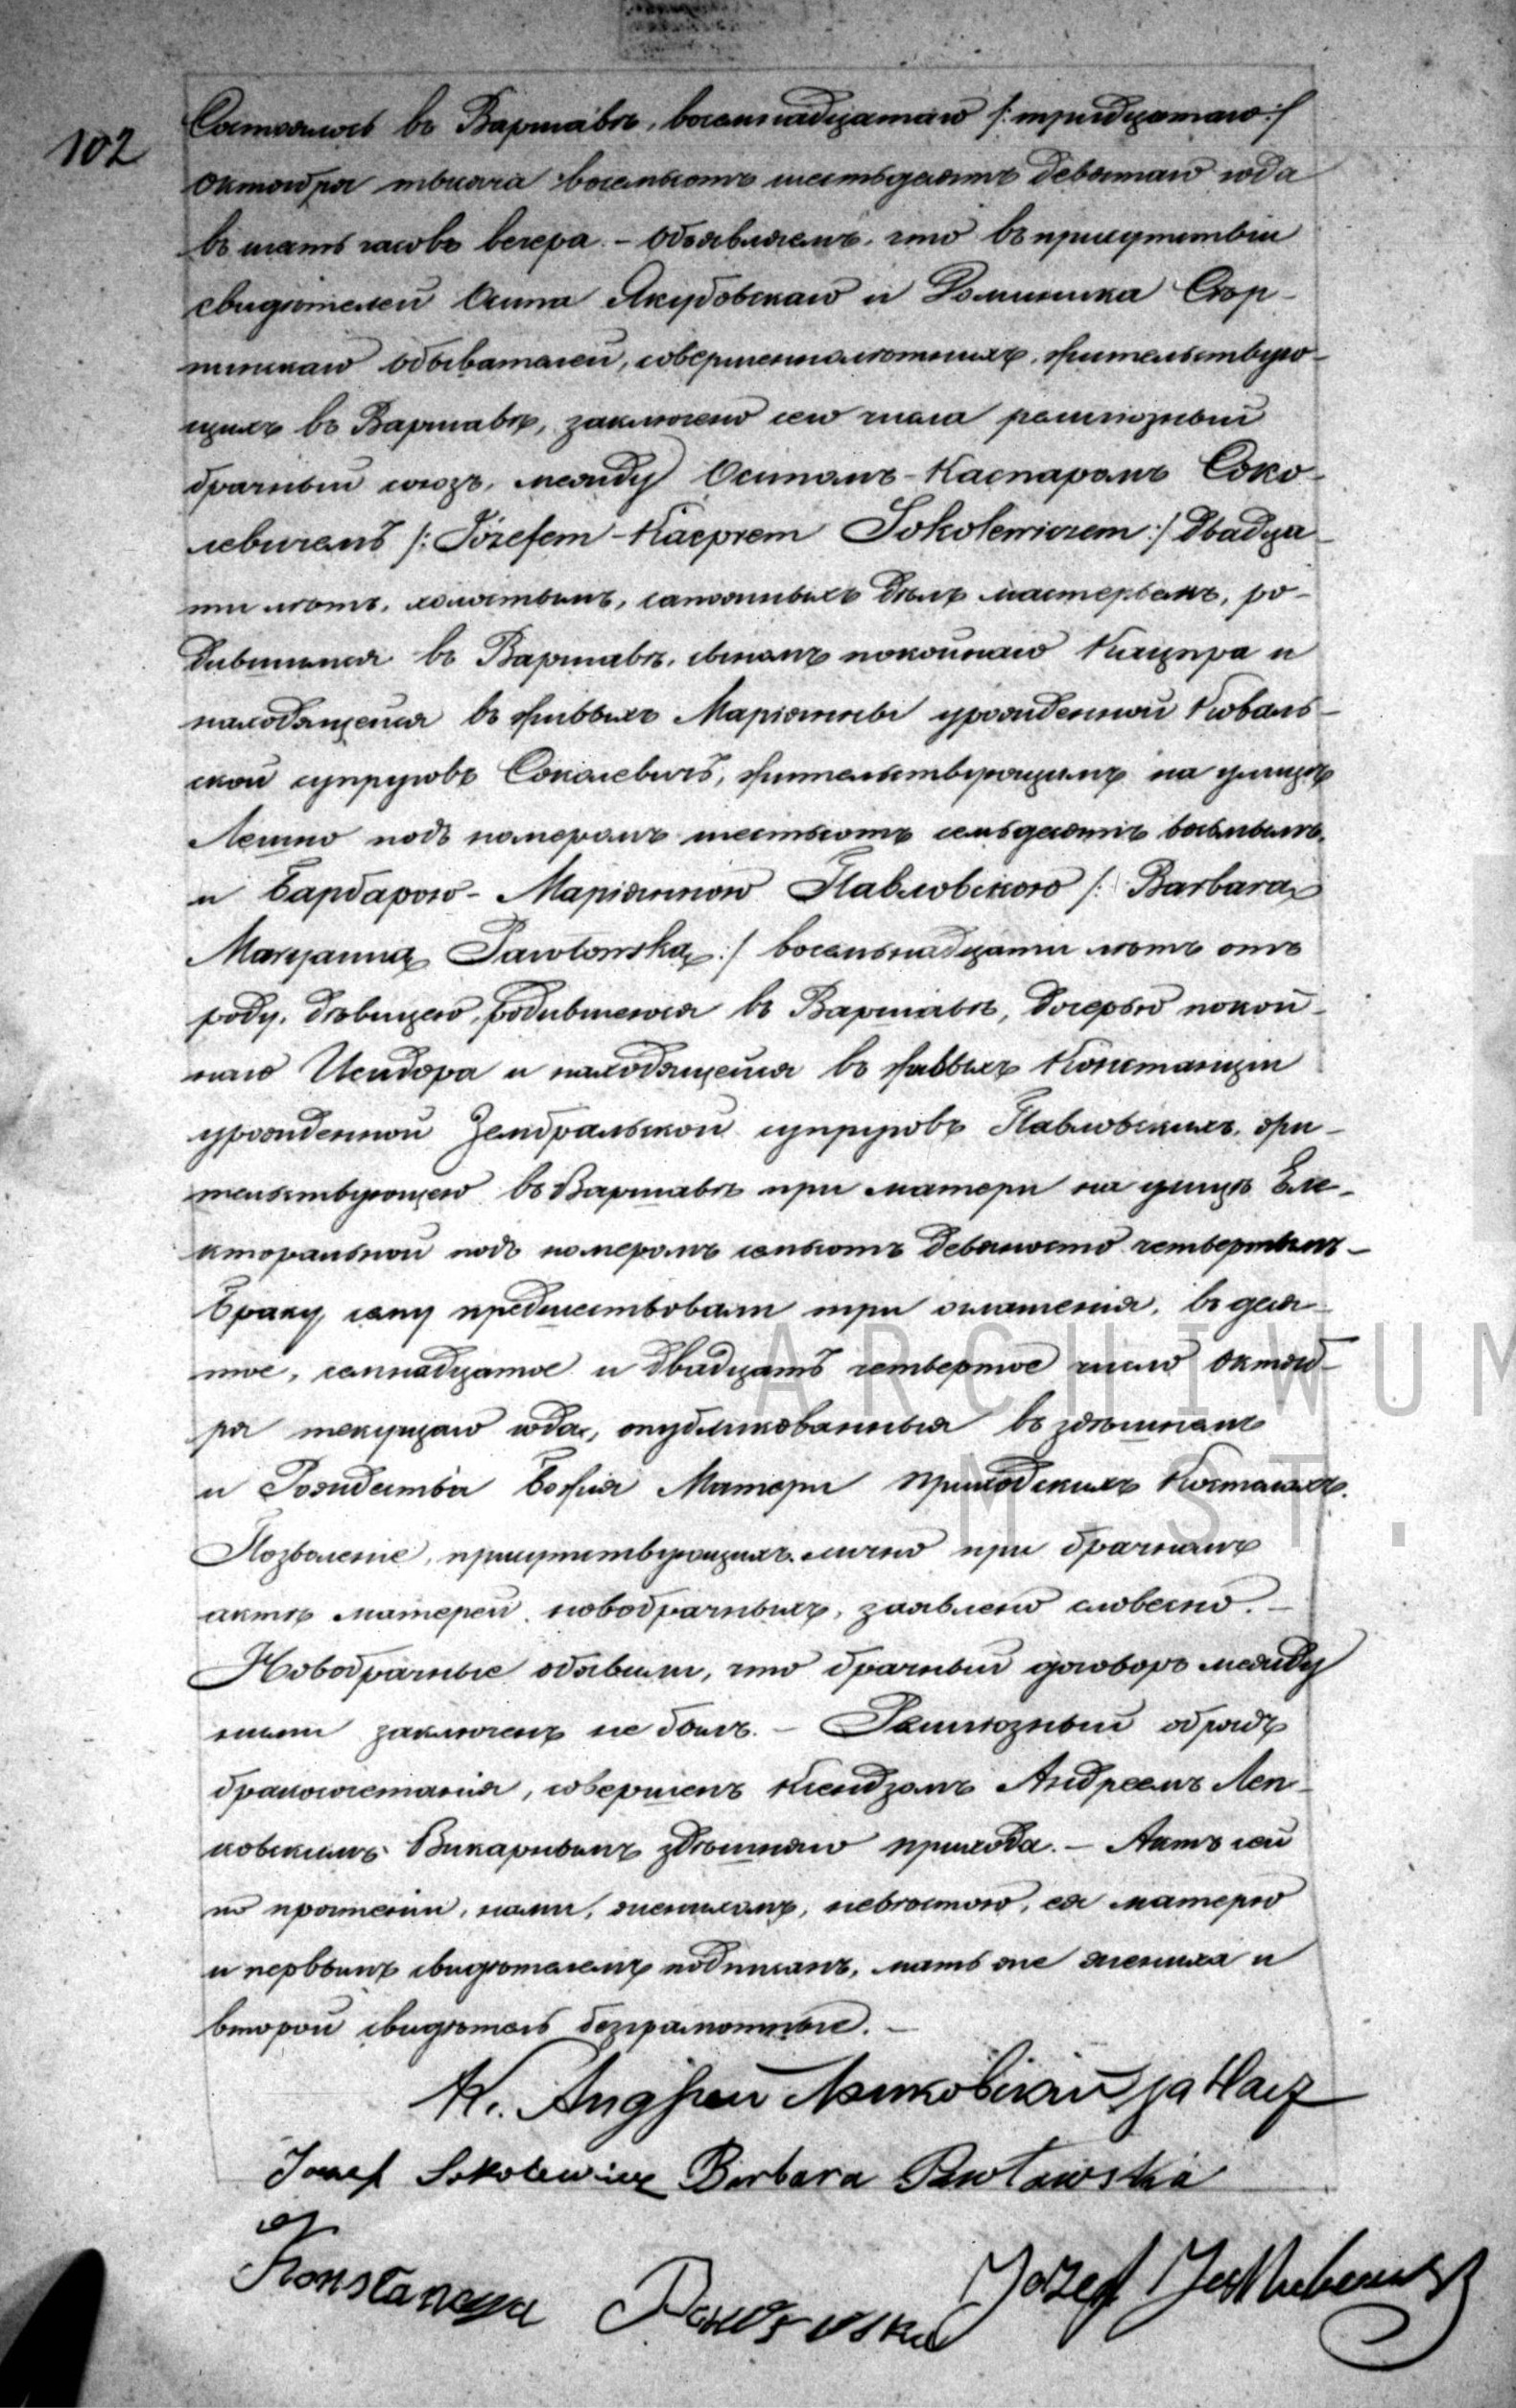 102
Состоялось въ Варшавѣ, восемнадцатаго /:тридцатаго:/
Октоября тысяча восемьсотъ шестьдесятъ девятаго года
въ шать часовъ вечера. – Объявляемъ, что въ присутствіи
свидѣтелей Осипа Якубовскаго и Доминика Скор-
пинскаго обывателей, совершеннолѣтнихъ, жительствую-
щихъ въ Варшавѣ, заключено сего числа религіозный
брачный союзъ, между Осипомъ-Каспаромъ Соко-
левичемъ /: Józefem-Kacprem Sokolewiczem :/ двадца-
ти лѣтъ, холостымъ, сапожныхъ дѣлъ мастеромъ, ро-
дившимся въ Варшавѣ, сыномъ покойнаго Кацпра и
находящейся въ живыхъ Маріянны урожденной Коваль-
ской супруговъ Соколевичъ, жительствующимъ на улицѣ
Лешно подъ номеромъ шестьсотъ семьдесятъ восьмымъ,
и Барбарою-Маріянною Павловскою /: Barbarą
Maryanną Pawłowską :/ восемьнадцати лѣтъ отъ
роду, дѣвицею, родившеюся въ Варшавѣ, дочерью покой-
наго Исидора и находящейся въ живыхъ Констанціи
урожденной Зембральской супруговъ Павловскихъ, жи-
тельствующею въ Варшавѣ при матери на улицѣ Еле-
кторальной подъ номеромъ семьсотъ девяносто четвертымъ –
Браку сему предшествовали три оглашенія, въ деся-
тое, семнадцатое и двадцать четвертое число Октоб-
ря текущаго года, опубликованныя въ здѣшнемъ
и Рождества Божія Матери приходскихъ Костелахъ.
Позволеніе, присутствующихъ лично при брачномъ
актѣ матерей новобрачныхъ, заявлено словесно. –
Новобрачные объявили, что брачный договоръ между
ними заключенъ не былъ. – Религіозный обрядъ
бракосочетанія, совершенъ Ксендзомъ Андреемъ Леп-
ковскимъ Викарнымъ здѣшняго прихода. – Актъ сей
по прочтеніи, нами, женихомъ, невѣстою, ея матерю
и первымъ свидѣтелемъ подписанъ, мать же жениха и
второй свидѣтель безграмотные. –
К. Андрей за Нас
Józef Sokolewicz Barbara Pawłowska
Konstancya Pawłowska Józef Jakubowski
ARCHIWUM
M.ST.